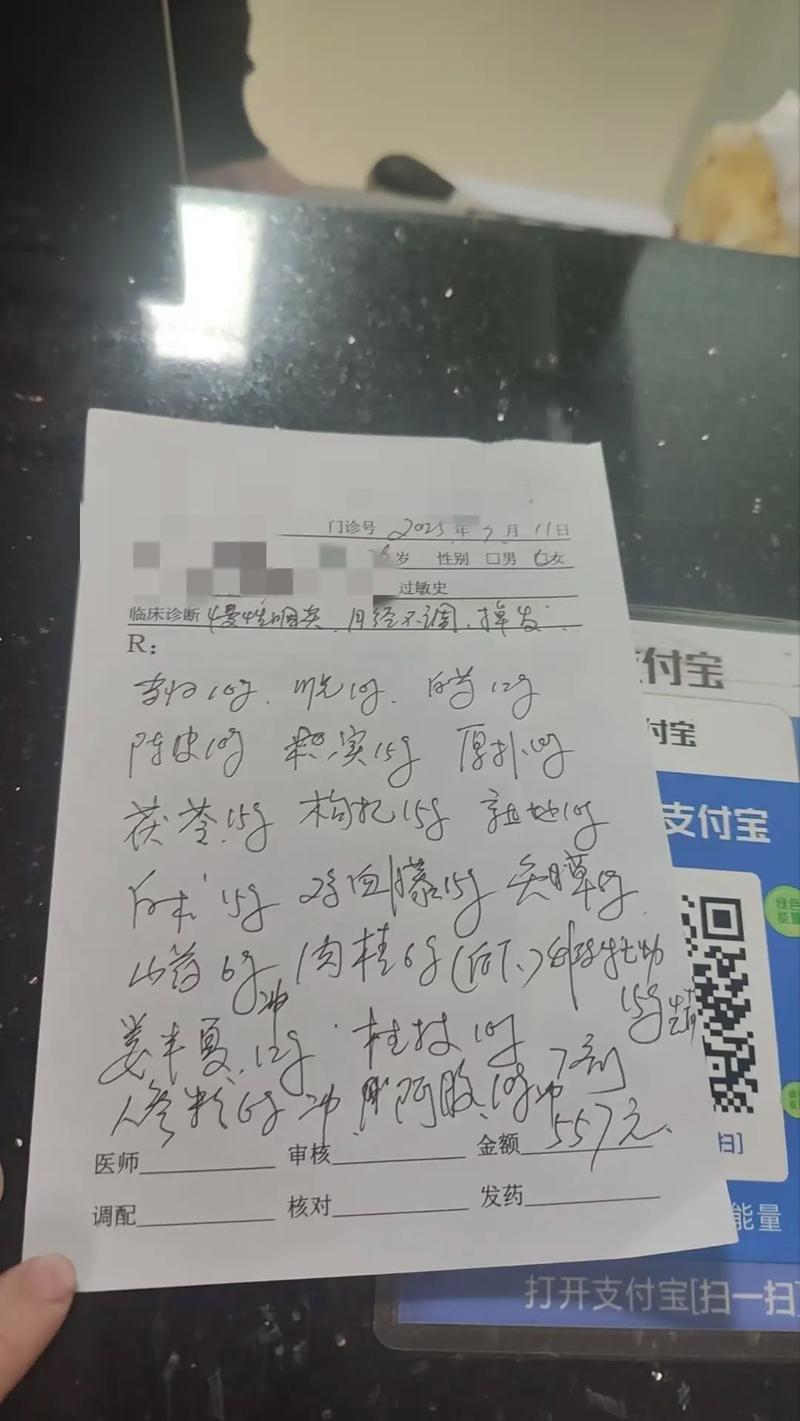 门诊号 2025年7月11日
6岁 性别 □男 ☑女
过敏史
临床诊断 慢性咽炎、月经不调、掉发
R:
当归10g、川芎10g、白芍12g
陈皮10g 枳实15g 厚朴10g
茯苓15g 枸杞15g 熟地10g
白术15g 鸡血藤15g
山药6g 肉桂6g(后下)
15g
冲
姜半夏12g 桂枝10g
7剂
人参粉6g冲 阿胶10g冲
医师 审核 金额557元
调配 核对 发药
支付宝
付宝
支付宝
绿色
能量
扫]
能量
打开支付宝[扫一扫]